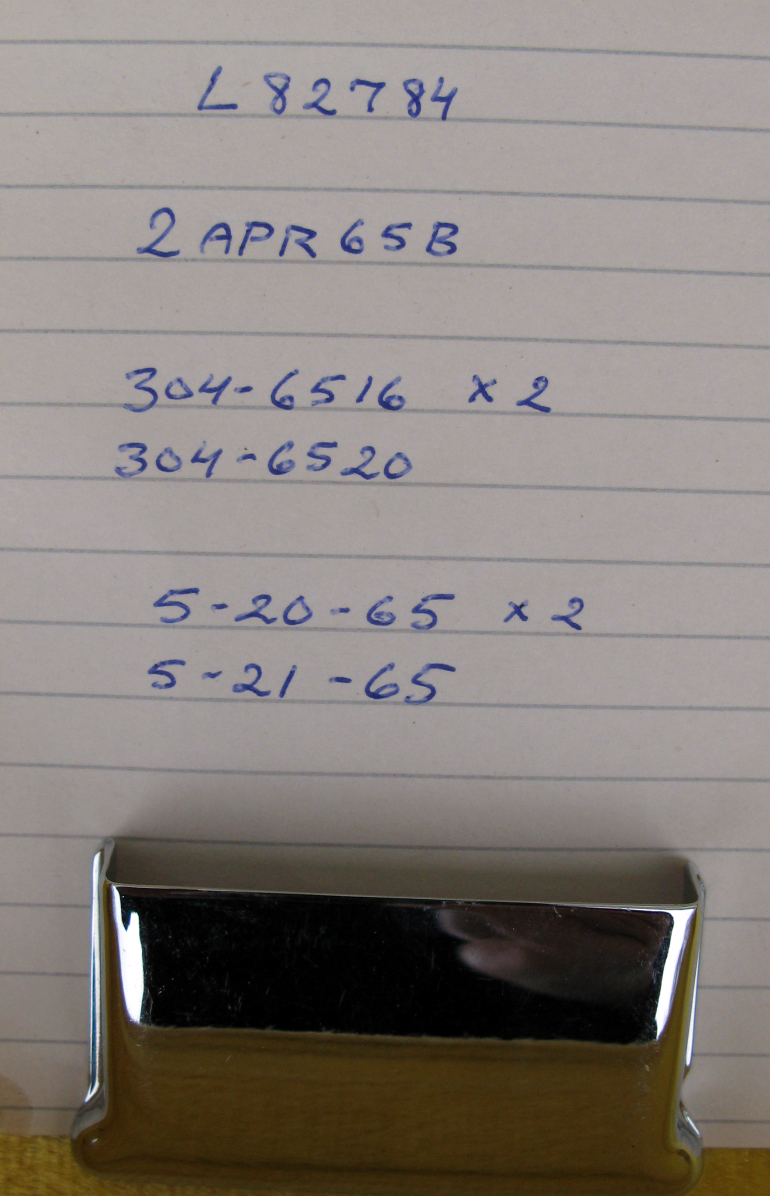 L82784
2 APR 65 B
304-6516 x 2
304-6520
5-20-65 x 2
5-21-65